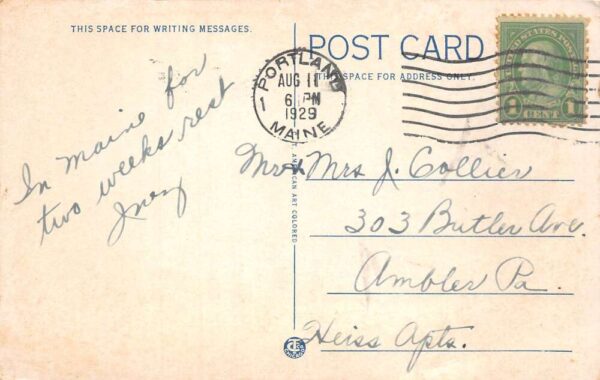 THIS SPACE FOR WRITING MESSAGES.
In Maine for
two weeks rest
Inez
POST CARD
THIS SPACE FOR ADDRESS ONLY.
PORTLAND
AUG 11
6 PM
1929
1
MAINE
UNITED STATES POSTAGE
1 CENT 1
AMERICAN ART COLORED
Mr & Mrs J. Collier
303 Butler Ave.
Ambler Pa.
Heiss Apts.